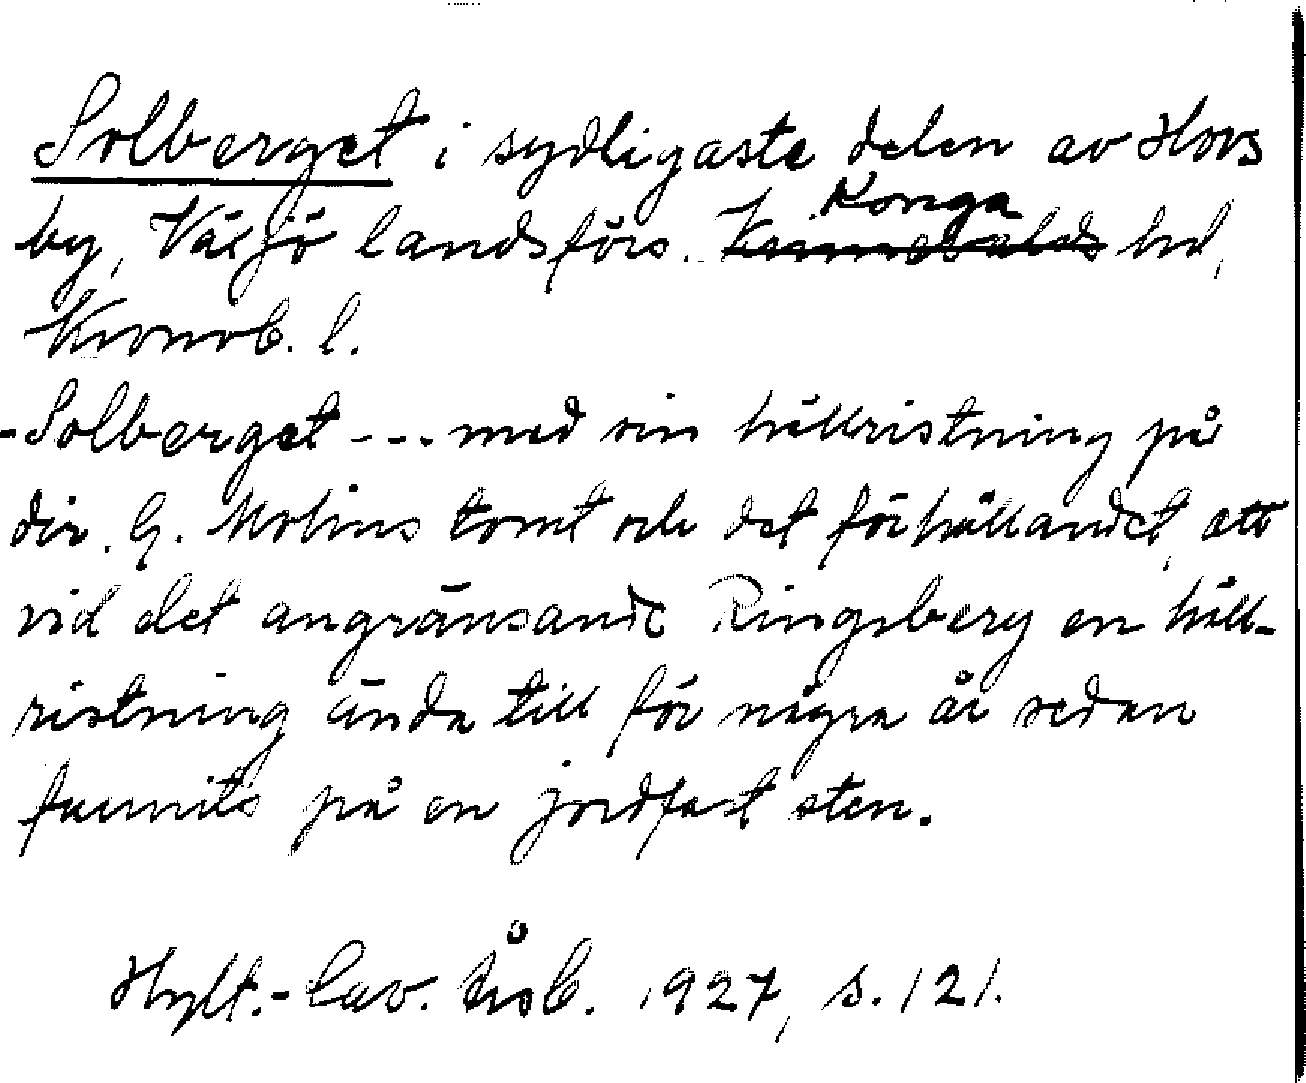 Solberget i sydligaste delen av Hovs
by, Växjö landsförs. Konga hd,
Kronob. l.
-Solberget --- med sin hällristning på
dir. G. Molins tomt och det förhållandet, att
vid det angränsande Ringsberg en häll-
ristning ända till för några år sedan
funnits på en jordfast sten.
Hylt.-Cav. årsb. 1927, s. 121.